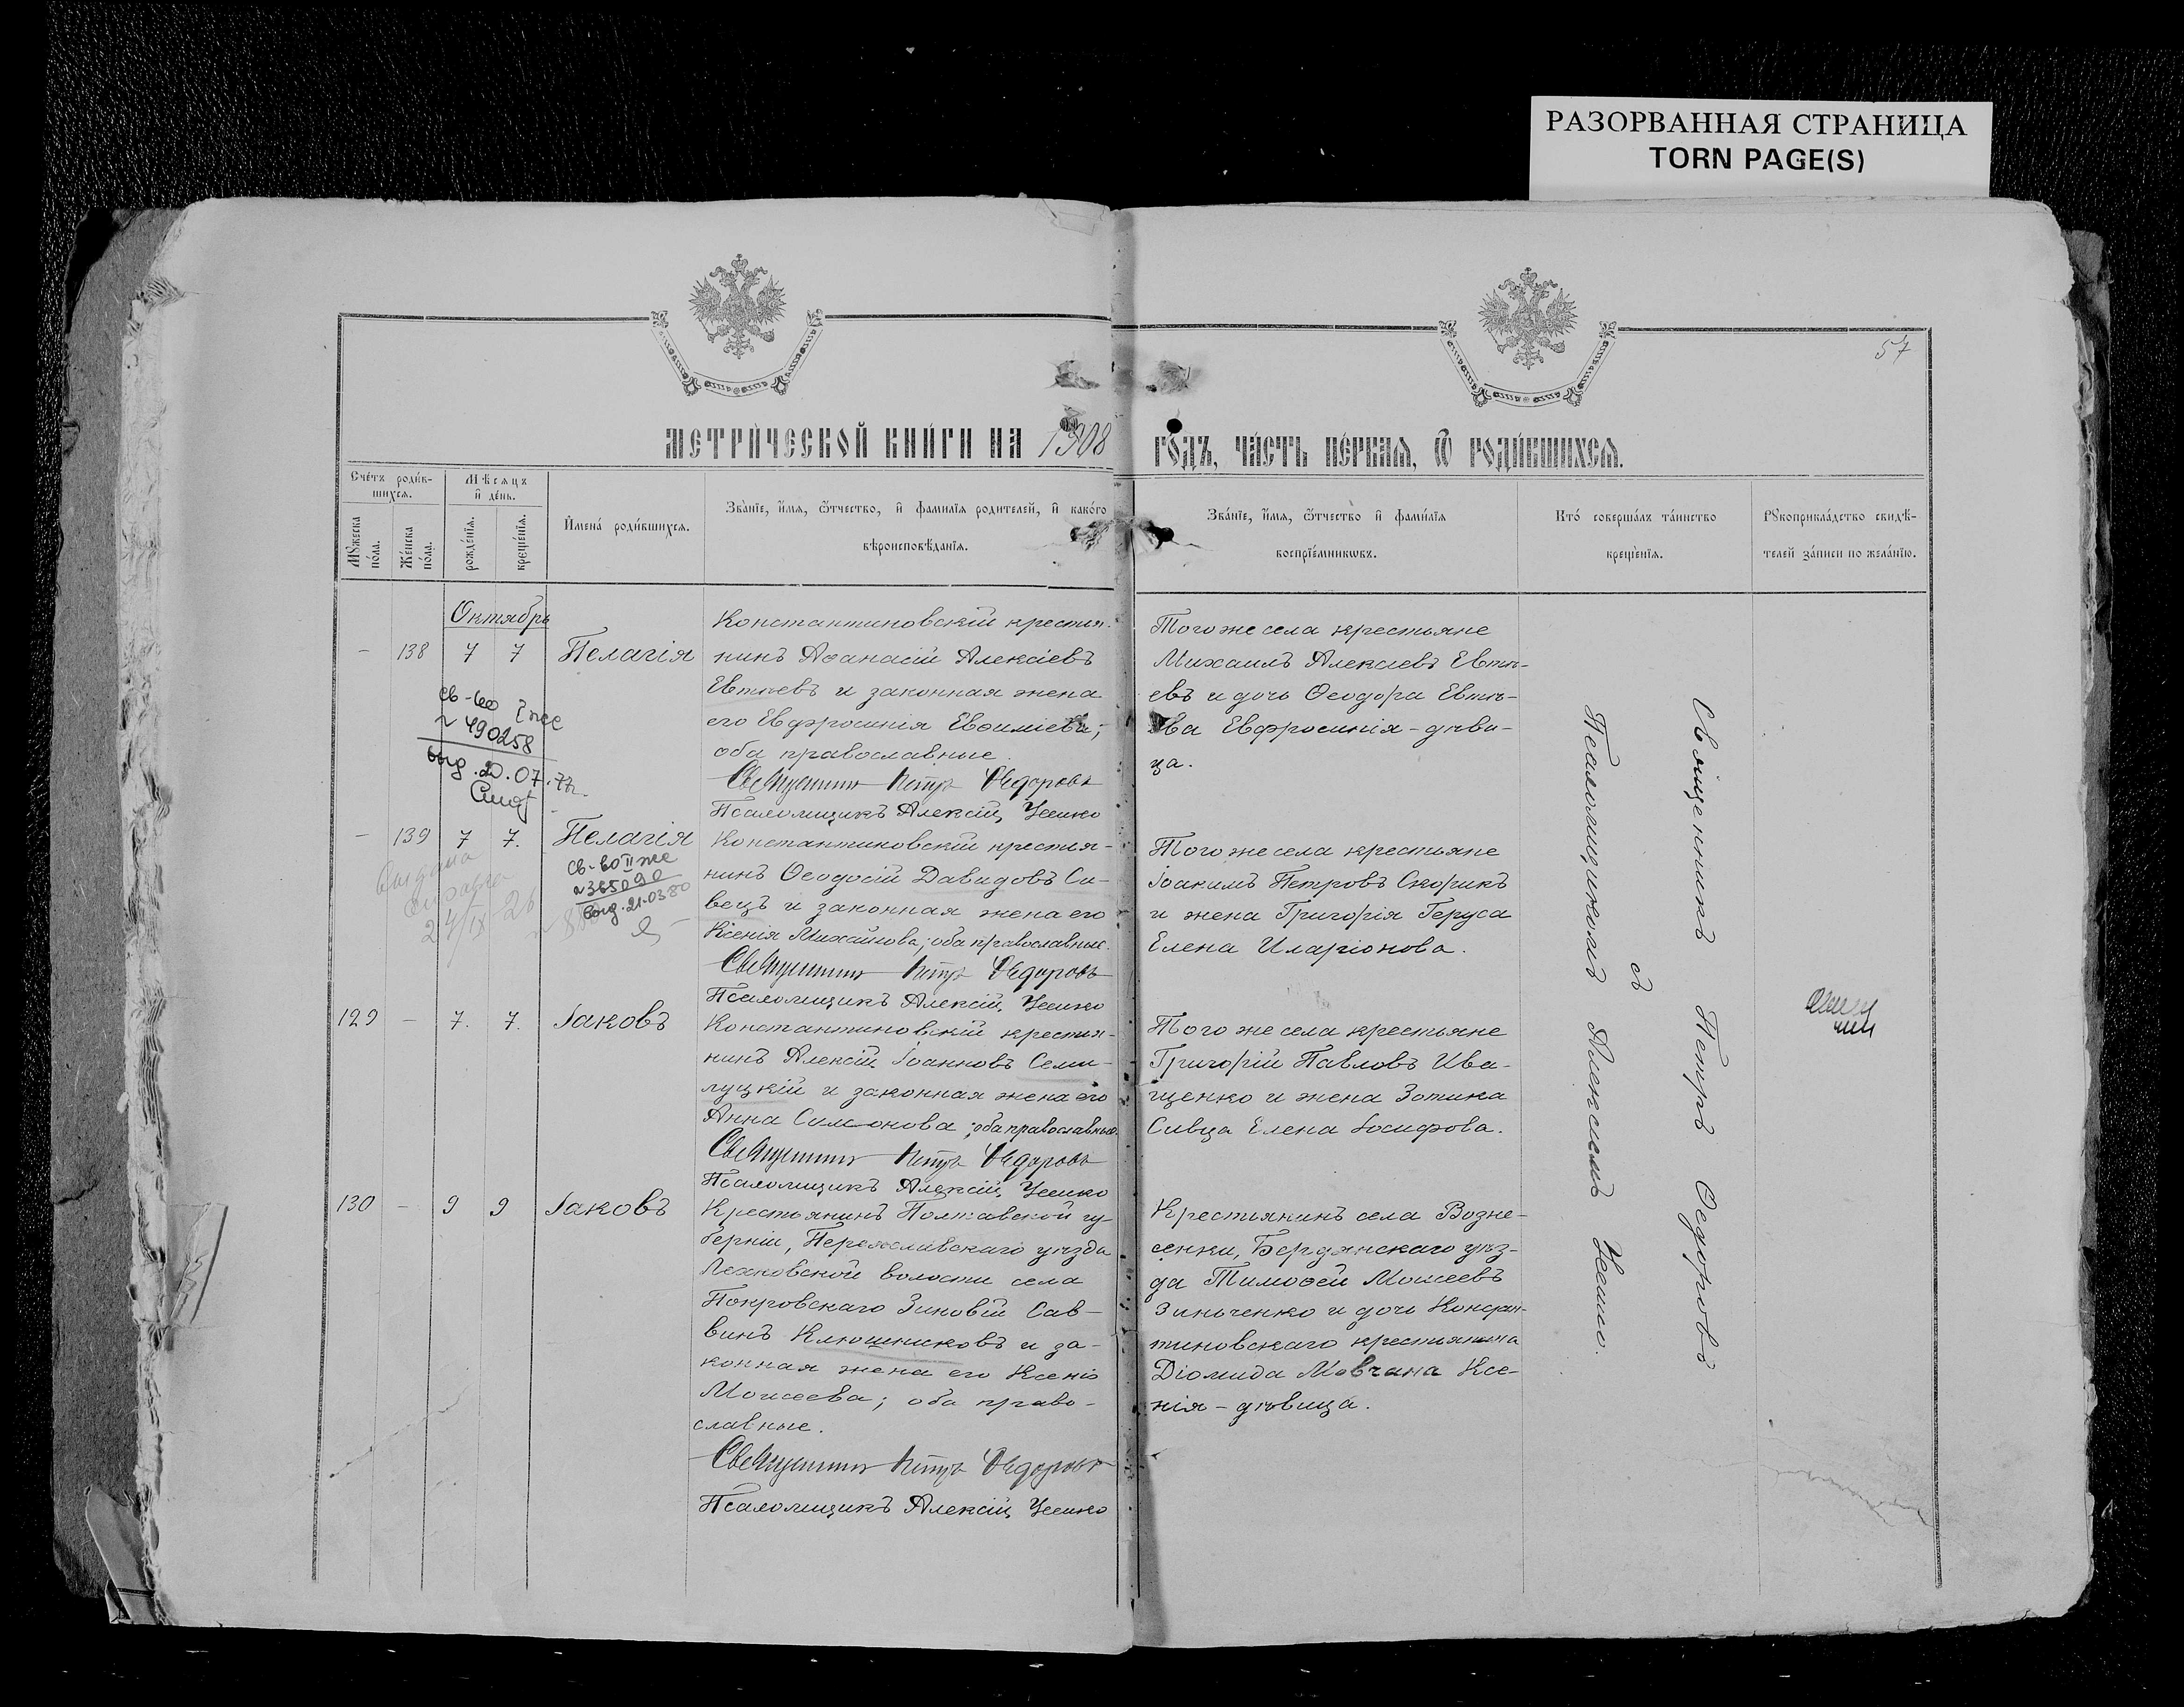 РАЗОРВАННАЯ СТРАНИЦА
TORN PAGE(S)
57
МЕТРИ́ЧЕСКОЙ КНИ́ГИ НА 1908 ГО́ДЪ, ЧА́СТЬ ПЕ́РВАЯ, Ѡ РОДИ́ВШИХСЯ.
Счетъ роди́вшихся.
Мꙋжеска по́ла.
Же́нска по́ла.
Мѣсяцъ и҆ де́нь.
рожде́нїя.
креще́нїя.
И҆мена́ роди́вшихся.
Зва́нїе, и҆́мя, ѻ҆́тчество, и҆ фамилїя родителей, и҆ како́го
вѣроисповѣ́данїя.
Зва́нїе, и҆́мя, ѻ҆́тчество и҆ фами́лїя
воспрїе́мникѡвъ.
Кто́ соверша́лъ та́инство
креще́нїя.
Рꙋкоприкла́дство свидѣ́-
телей за́писи по жела́нїю.
Октябрь
- 138 7 7 Пелагія
Константиновскій крестья-
нинъ Аѳанасій Алексіевъ
Евтѣевъ и законная жена
его Евфросинія Евѳиміева;
оба православные.
Священникъ Петръ Ѳедоровъ
Псаломщикъ Алексій
Того же села крестьяне
Михаилъ Алексіевъ Евтѣ-
евъ и дочь Ѳеодора Евтѣ-
ева Евфросинія - дѣви-
ца.
св-во
№ 490258
выд. 20.07.77г.
- 139 7 7. Пелагія
Константиновскій крестья-
нинъ Ѳеодосій Давидовъ Си-
вецъ и законная жена его
Ксенія Михайлова; оба православные.
Священникъ Петръ Ѳедоровъ
Псаломщикъ Алексій
Того же села крестьяне
Іоакимъ Петровъ Скорикъ
и жена Григорія Геруса
Елена Иларіонова.
Св-во II же
№ 365090
выд. 21.03.80
Выдана
справка
24/IX-26
129 - 7. 7. Іаковъ
Константиновскій крестья-
нинъ Алексій Іоанновъ Семи-
луцкій и законная жена его
Анна Симонова; оба православные.
Священникъ Петръ Ѳедоровъ
Псаломщикъ Алексій
Того же села крестьяне
Григорій Павловъ Ива-
щенко и жена Зотика
Сивца Елена Іосифова.
130 - 9 9 Іаковъ
Крестьянинъ Полтавской гу-
берніи, Переяславскаго уѣзда
волости села
Покровскаго Зиновій Сав-
винъ Клюшниковъ и за-
конная жена его Ксенія
Моисеева; оба право-
славные.
Священникъ Петръ Ѳедоровъ
Псаломщикъ Алексій
Крестьянинъ села Возне-
сенки, Бердянскаго уѣз-
да Тимоѳей Моисеевъ
Зинченко и дочь Констан-
тиновскаго крестьянина
Діомида Мовчана Ксе-
нія - дѣвица.
Священникъ Петръ Ѳедоровъ
съ
Псаломщикомъ Алексіемъ